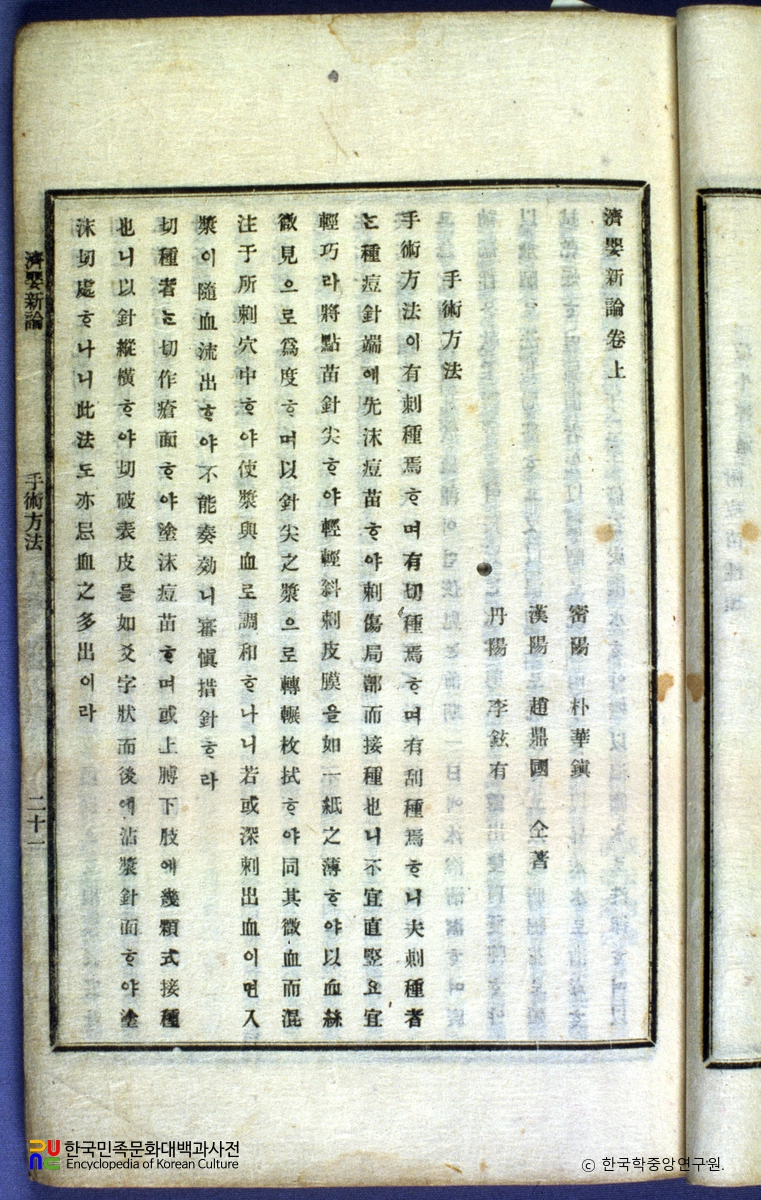 濟嬰新論卷上
密陽 朴華鎭
漢陽 趙鼎國 仝著
丹陽 李鉉有
手術方法
手術方法이有刺種焉ᄒᆞ며有切種焉ᄒᆞ며有刮種焉ᄒᆞ니夫刺種者
ᄂᆞᆫ種痘針端에先沫痘苗ᄒᆞ야刺傷局部而接種也니不宜直竪요宜
輕巧라將點苗針尖ᄒᆞ야輕輕斜刺皮膜을如一紙之薄ᄒᆞ야以血絲
微見으로爲度ᄒᆞ며以針尖之漿으로轉輾枚拭ᄒᆞ야同其微血而混
注于所刺穴中ᄒᆞ야使漿與血로調和ᄒᆞ나니若或深刺出血이면入
漿이隨血流出ᄒᆞ야不能奏効니審愼措針ᄒᆞ라
切種者ᄂᆞᆫ切作瘡面ᄒᆞ야塗沫痘苗ᄒᆞ며或上膊下肢에幾顆式接種
也니以針縱橫ᄒᆞ야切破表皮를如爻字狀而後에沾漿針面ᄒᆞ야塗
沫切處ᄒᆞ나니此法도亦忌血之多出이라
濟嬰新論 手術方法 二十一
한국민족문화대백과사전
Encyclopedia of Korean Culture
© 한국학중앙연구원.